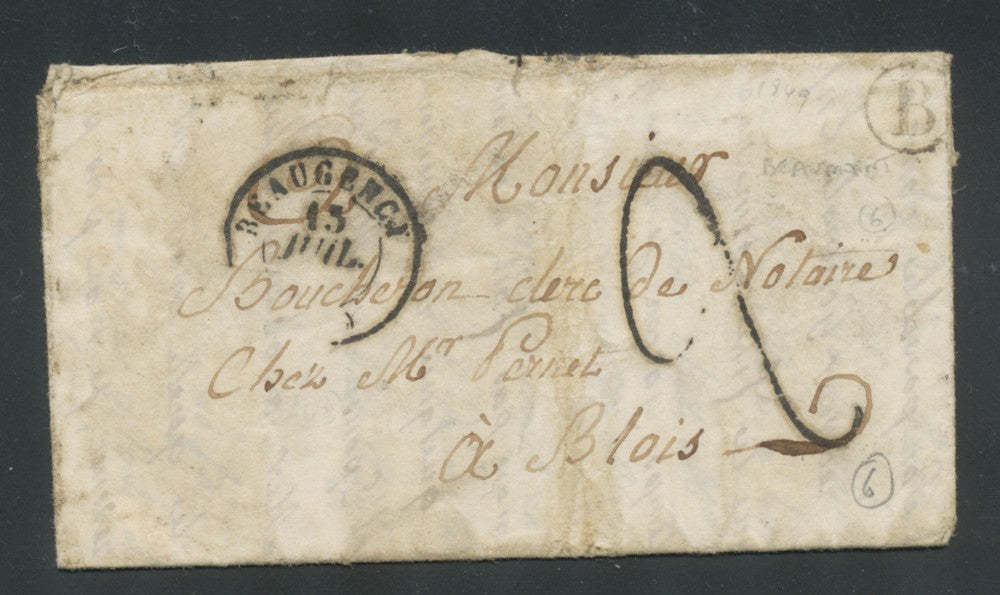 1849
B
BEAUGENCY
15
JUIL.
Monsieur
6
Boucheron clerc de Notaire
Chez Mr Pernet
à Blois
2
6